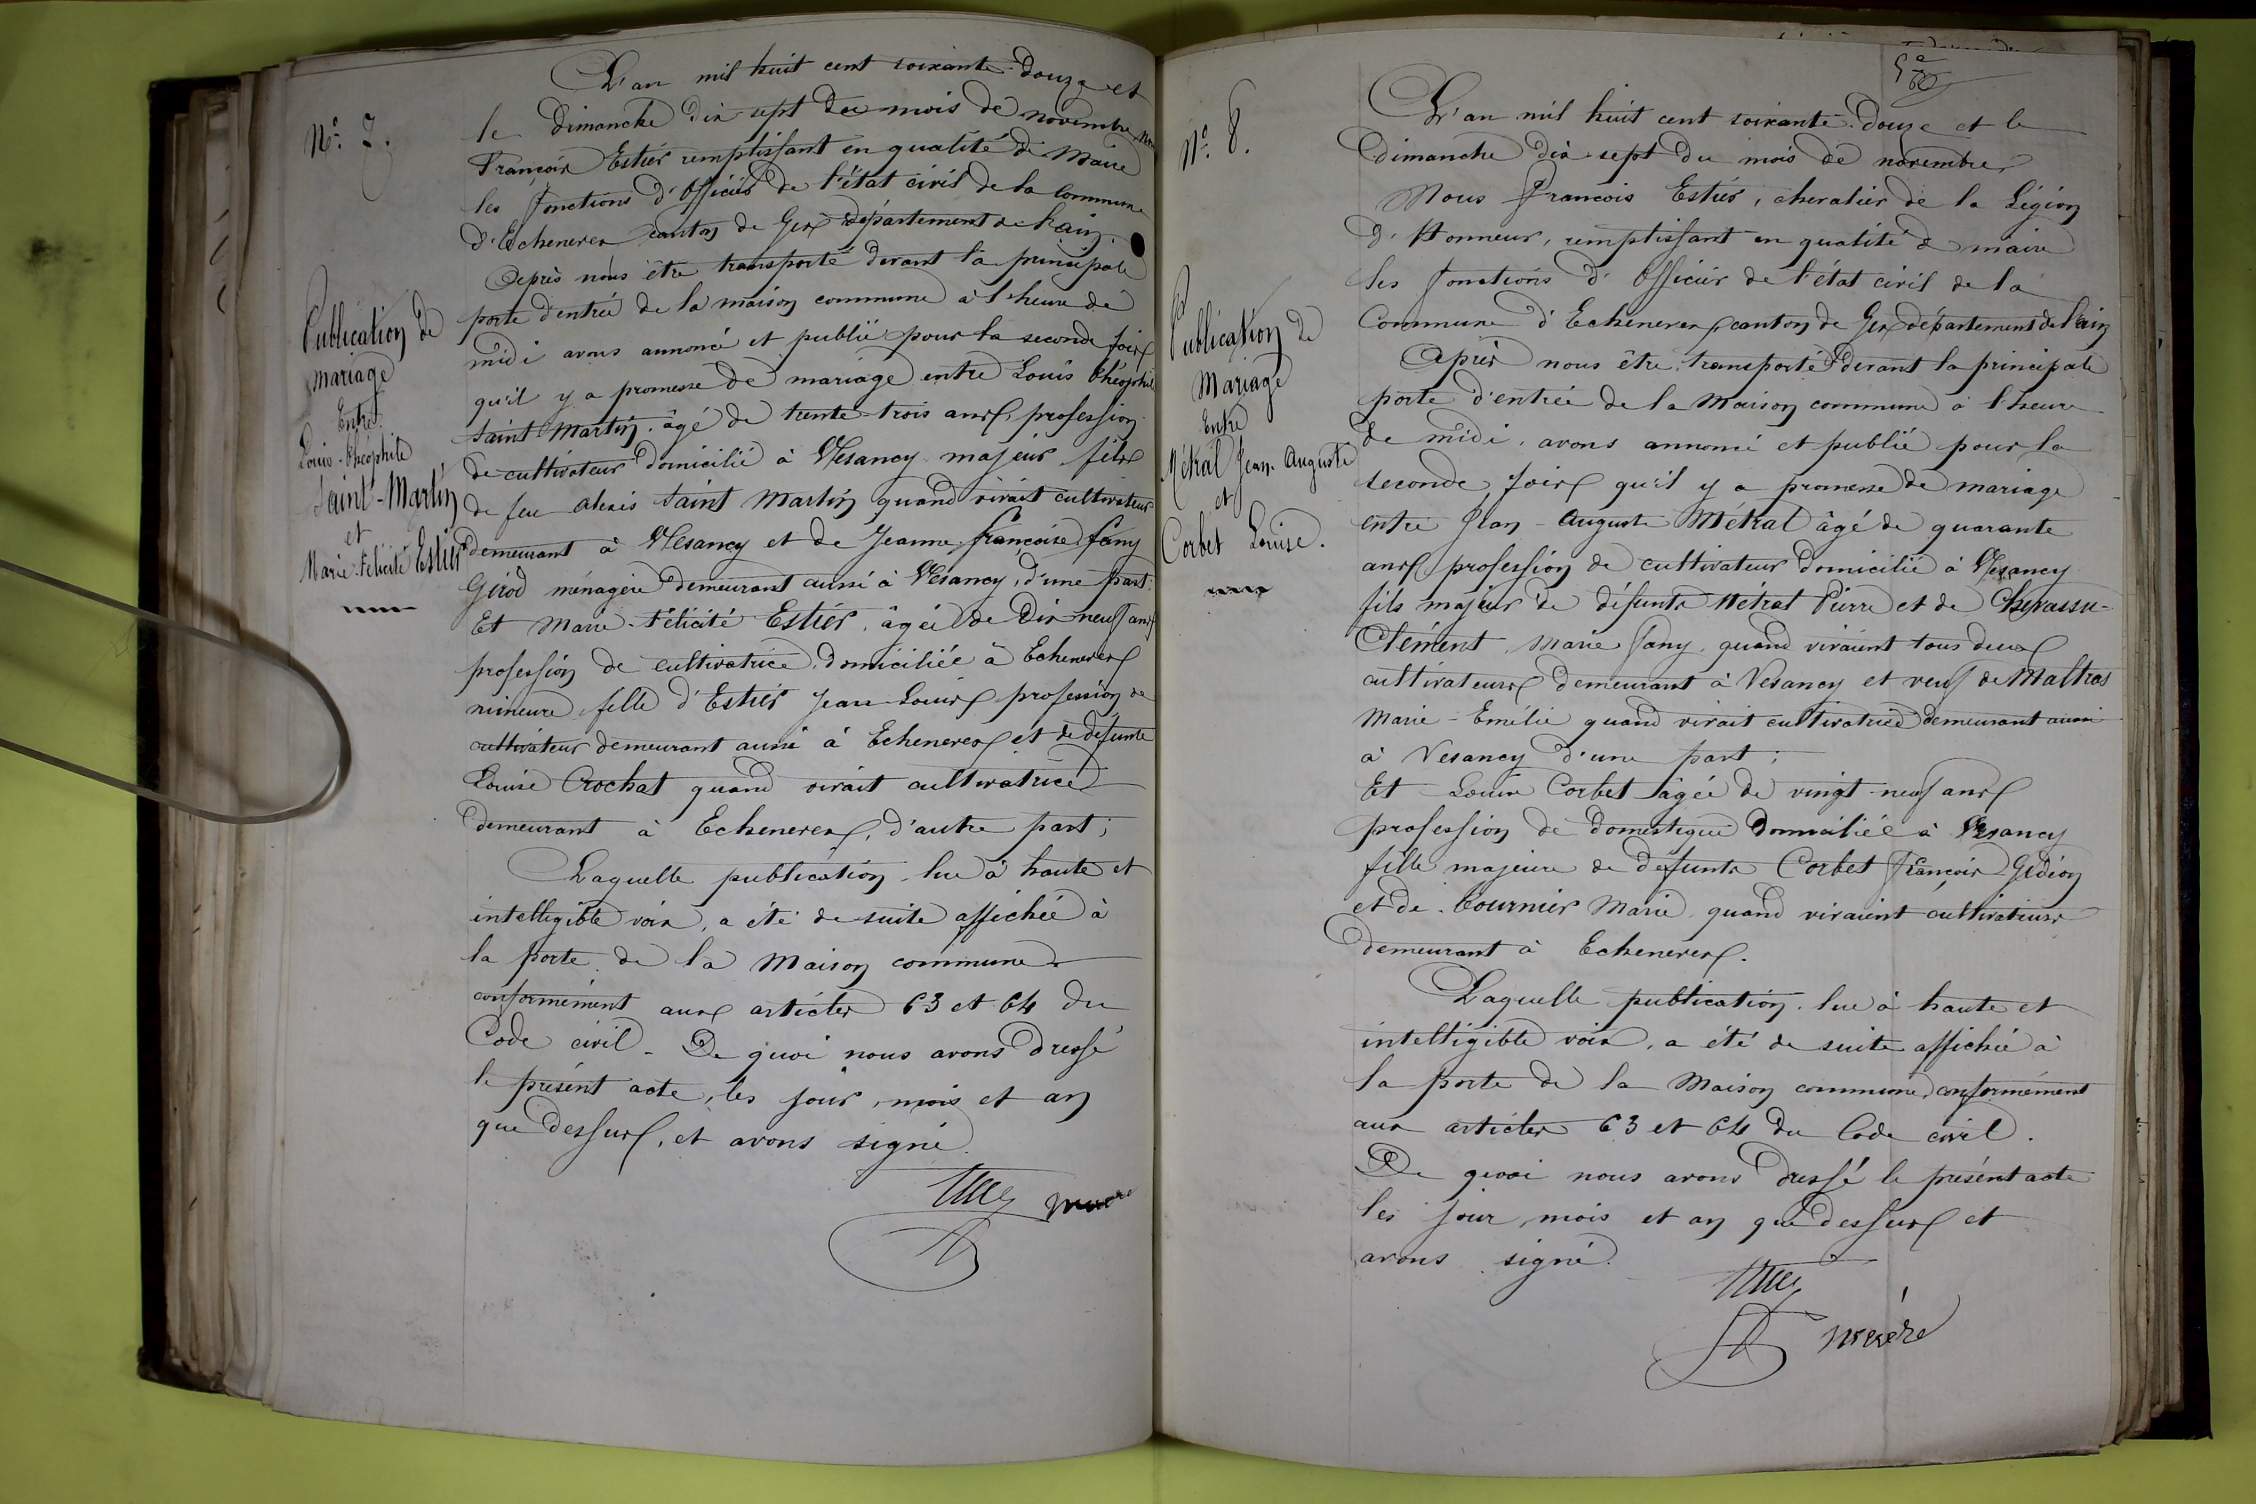 Nº 7.
Publication de
mariage
Entre
Louis-Théophile
Saint-Martin
et
Marie-Félicité Estier
L'an mil huit cent soixante-douze et
le dimanche dix-sept du mois de novembre Nous
François Estier remplissant en qualité de Maire
les fonctions d'Officier de l'état civil de la Commune
d'Echenevex canton de Gex département de l'ain.
Après nous être transporté devant la principale
porte d'entrée de la maison commune à l'heure de
midi avons annoncé et publié pour la seconde fois
qu'il y a promesse de mariage entre Louis Théophile
Saint Martin, âgé de trente-trois ans, profession
de cultivateur domicilié à Vesancy majeur fils
de feu alexis Saint Martin quand vivait cultivateur
demeurant à Vesancy et de Jeanne françoise fany
Girod ménagère demeurant aussi à Vesancy, d'une part:
Et Marie-Félicité Estier, âgée de dix-neuf ans
profession de cultivatrice, domiciliée à Echenevex
mineure fille d'Estier Jean-Louis profession de
cultivateur demeurant aussi à Echenevex et de défunte
Louise Crochat quand vivait cultivatrice
demeurant à Echenevex, d'autre part;
Laquelle publication, lue à haute et
intelligible voix, a été de suite affichée à
la porte de la Maison commune
conformément aux articles 63 et 64 du
Code civil. De quoi nous avons dressé
le présent acte, les jour, mois et an
que dessus, et avons signé.
Nº 8.
Publication de
Mariage
Entre
Métral Jean-Auguste
et
Corbet Louise.
L'an mil huit cent soixante-douze et le
dimanche dix-sept du mois de novembre
Nous François Estier, chevalier de la Légion
d'Honneur, remplissant en qualité de maire
les fonctions d'Officier de l'état civil de la
Commune d'Echenevex, canton de Gex département de l'ain
Après nous être transporté devant la principale
porte d'entrée de la Maison commune à l'heure
de midi, avons annoncé et publié pour la
seconde fois qu'il y a promesse de mariage
entre Jean-Auguste Métral âgé de quarante
ans profession de cultivateur domicilié à Vesancy
fils majeur de défunts Métral Pierre et de Chevassu-
Clément, Marie fany, quand vivaient tous deux
cultivateurs demeurant à Vesancy et veuf de Maltras
Marie-Emélie quand vivait cultivatrice demeurant aussi
à Vesancy d'une part;
Et Louise Corbet âgée de vingt-neuf ans
profession de domestique domiciliée à Vesancy
fille majeure de défunts Corbet François Gédéon
et de Tournier Marie, quand vivaient cultivateurs
demeurant à Echenevex.
Laquelle publication, lue à haute et
intelligible voix, a été de suite affichée à
la porte de la Maison commune, conformément
aux articles 63 et 64 du Code civil.
De quoi nous avons dressé le présent acte
les jour, mois et an que dessus et
avons signé.